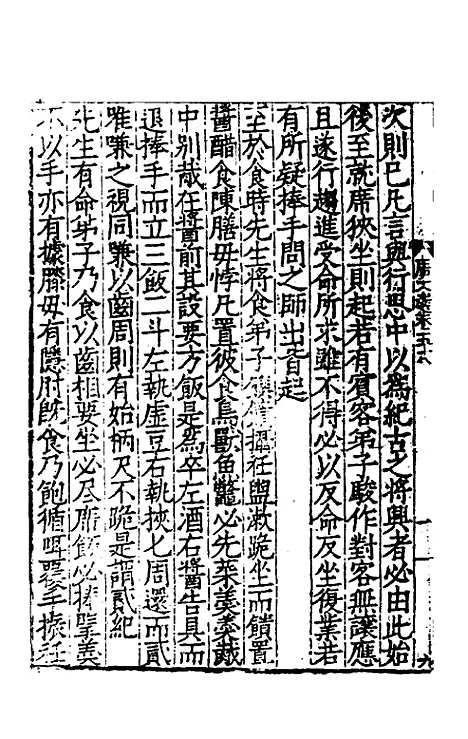 次則已凡言與行思中以為紀古之將興者必由此始
後至就席狹坐則起若有賔客弟子駿作對客無讓應
且遂行趨進受命所求雖不得必以反命反坐復業若
有所疑捧手問之師出皆起
至於食時先生將食弟子饌饋攝衽盥漱跪坐而饋置
醬醋食陳膳毋悖凡置彼食鳥獸魚鼈必先菜羮羮胾
中別胾在醬前其設要方飯是為卒左酒右醬告具而
退捧手而立三飯二斗左執虚豆右執挾匕周還而貳
唯嗛之視同嗛以齒周則有始柄尺不跪是謂貳紀
先生有命弟子乃食以齒相要坐必尽席飯必捧擥羮
不以手亦有據膝毋有隱肘旣食乃飽循咡覆手振衽
九